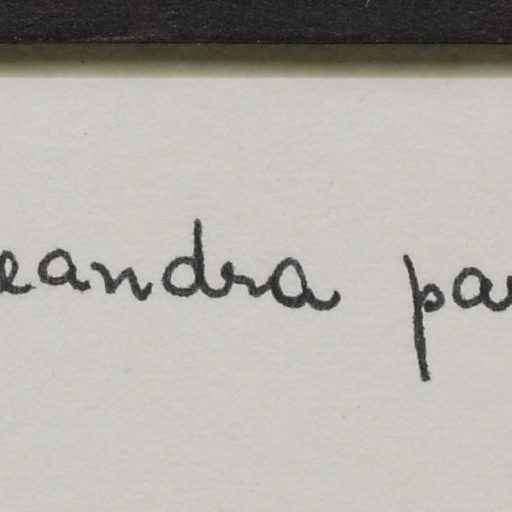 eandra pa